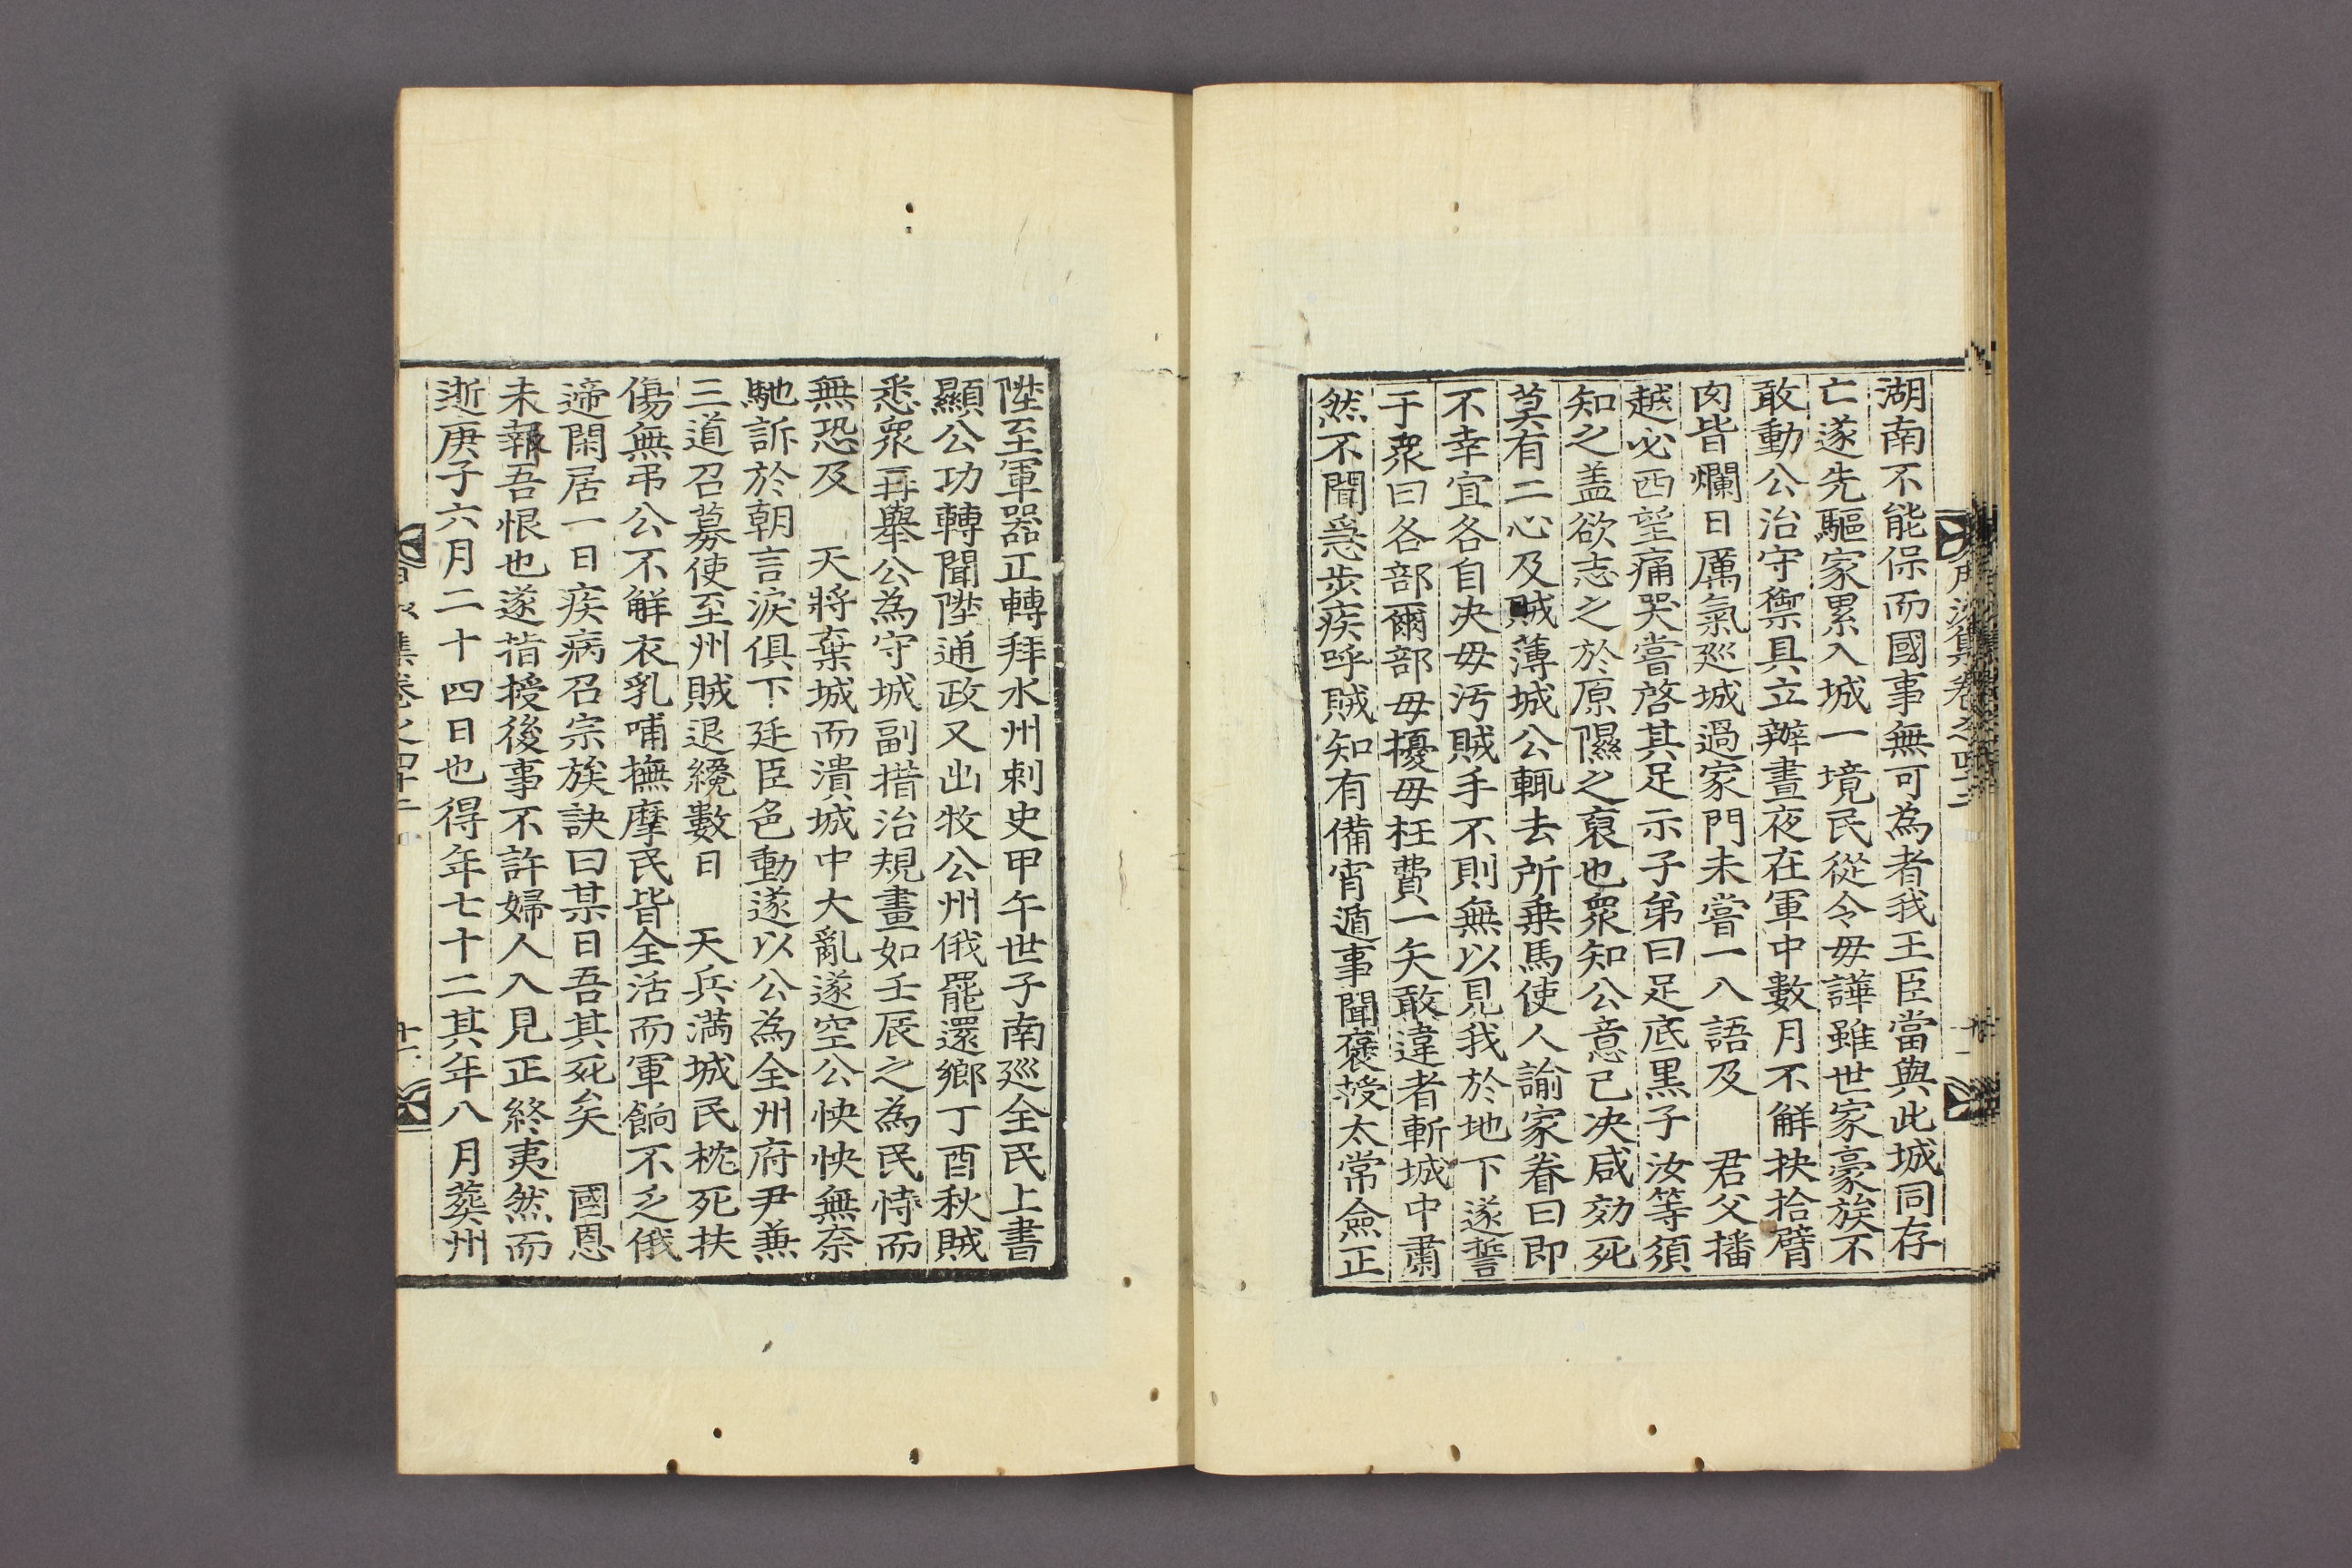 湖南不能保而國事無可為者我王臣當與此城同存
亡遂先驅家累入城一境民從令毋譁雖世家豪族不
敢動公治守禦具立辦晝夜在軍中數月不觧抉拾臂
肉皆爛日厲氣廵城過家門未嘗一入語及　君父播
越必西望痛哭嘗啓其足示子弟曰足底黒子汝等須
知之盖欲志之於原隰之裒也衆知公意已决咸効死
莫有二心及賊薄城公輒去所乗馬使人諭家眷曰即
不幸宜各自决毋汚賊手不則無以見我於地下遂誓
于衆曰各部爾部毋擾毋枉費一矢敢違者斬城中肅
然不聞急步疾呼賊知有備宵遁事聞褒授太常僉正
陞至軍器正轉拜水州刺史甲午世子南廵全民上書
顯公功轉聞陞通政又出牧公州俄罷還鄉丁酉秋賊
悉衆再舉公為守城副措治規畫如壬辰之為民恃而
無恐及　天將棄城而潰城中大亂遂空公怏怏無奈
馳訴於朝言淚俱下廷臣色動遂以公為全州府尹兼
三道召募使至州賊退纔數日　天兵滿城民枕死扶
傷無弔公不觧衣乳哺撫摩民皆全活而軍餉不乏俄
遆閑居一日疾病召宗族訣曰某日吾其死矣　國恩
未報吾恨也遂指授後事不許婦人入見正終夷然而
逝庚子六月二十四日也得年七十二其年八月葬州
集卷之四十二